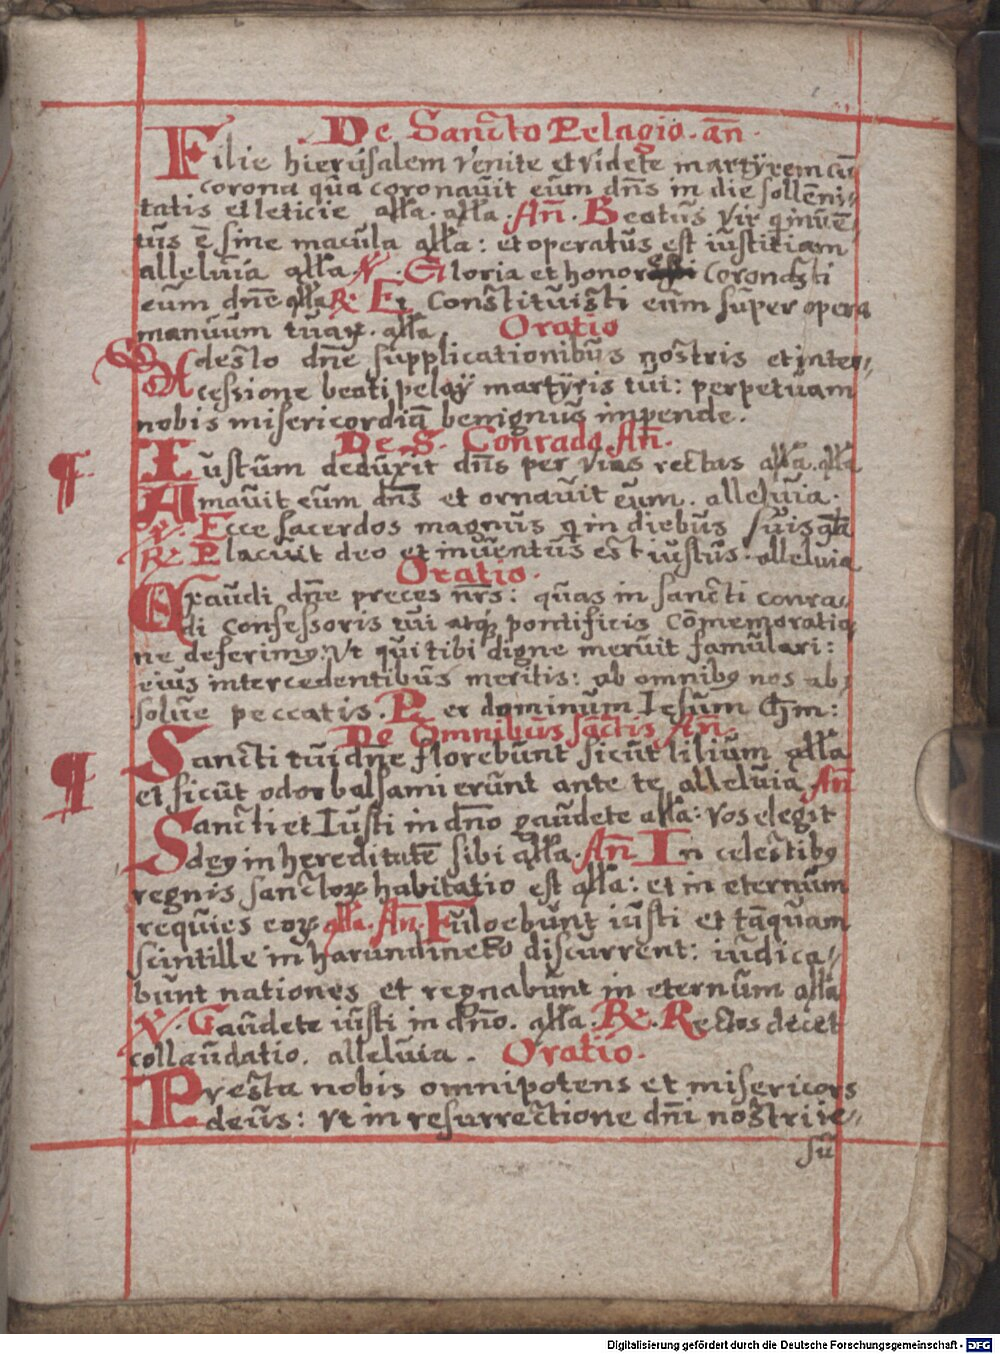 De Sancto Pelagio. an̄.
Filie hierusalem venite et videte martÿrem cū
corona qua coronauit eum dn̄s in die sollēni-
tatis et leticie all̄a. all̄a. An̄. Beatus vir q̄ inuē
tus ē sine macula all̄a: et operatus est iustitiam
alleluia all̄a. V̷. Gloria et honore coronasti
eum dn̄e all̄a R̷. Et Constituisti eum super opera
manuum tuaꝝ. all̄a. Oratio
Adesto dn̄e supplicationibus nostris et inter-
cessione beati pelaÿ martÿris tui: perpetuam
nobis misericordiā benignus impende.
De S. Conrado An̄.
Iustum deduxit dn̄s per vias rectas all̄a. all̄a
¶ Amauit eum dn̄s et ornauit eum. alleluia.
V̷. Ecce sacerdos magnus q̄ in diebus suis all̄a
R̷. Placuit deo et inuentus est iustus. alleluia
Oratio.
Exaudi dn̄e preces nr̄s: quas in sancti conra-
di confessoris tui atqꝫ pontificis cōmemoratio-
ne deferimꝰ: Vt qui tibi digne meruit famulari:
eius intercedentibus meritis: ab omnibꝰ nos ab-
solue peccatis. Per dominum Iesum Chm̄:
De Omnibus sanctis An̄.
Sancti tui dn̄e florebunt sicut lilium all̄a
¶ et sicut odor balsami erunt ante te alleluia An̄
Sancti et Iusti in dn̄o gaudete all̄a: vos elegit
deꝰ in hereditatē sibi all̄a. An̄. In celestibꝰ
regnis sanctoꝝ habitatio est all̄a: et in eternum
requies eoꝝ all̄a. An̄. Fulgebunt iusti et tāquam
scintille in harundineto discurrent: iudica-
bunt nationes et regnabunt in eternum all̄a
V̷. Gaudete iusti in dn̄o. all̄a. R̷. Rectos decet
collaudatio. alleluia. Oratio.
Presta nobis omnipotens et misericors
deus: vt in resurrectione dn̄i nostri ie-
sū
Digitalisierung gefördert durch die Deutsche Forschungsgemeinschaft - DFG